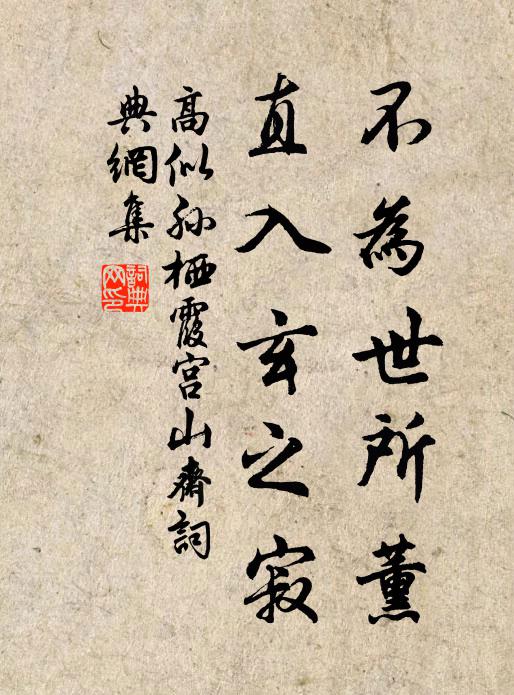 不為世所薰
直入玄之寂
高似孙栖霞宫山齋詞
典網集
詞典
网印